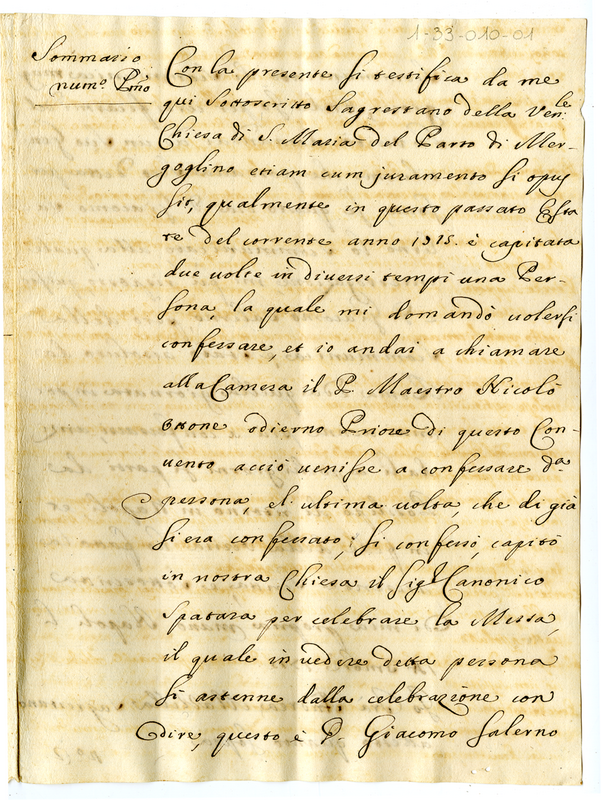 1-33-010-01
Sommario
num.o P.mo
Con la presente si testifica da me
qui Sottoscritto Sagrestano della Ven.le
Chiesa di S. Maria del Parto di Mer-
goglino etiam cum juramento si opus
sit, qualmente in questo passato Esta
te del corrente anno 1715. è capitata
due volte in diversi tempi una Per-
sona, la quale mi domandò volersi
confessare, et io andai a chiamare
alla Camera il P. Maestro Nicolò
odierno Priore di questo Con-
vento acciò venisse a confessare d.a
persona, e l'ultima volta, che di già
si era confessato, si confessò, capitò
in nostra Chiesa il Sig.r Canonico
Spatara per celebrare la Messa,
il quale in vedere detta persona
si astenne dalla celebrazione con
dire, questo è D. Giacomo Salerno